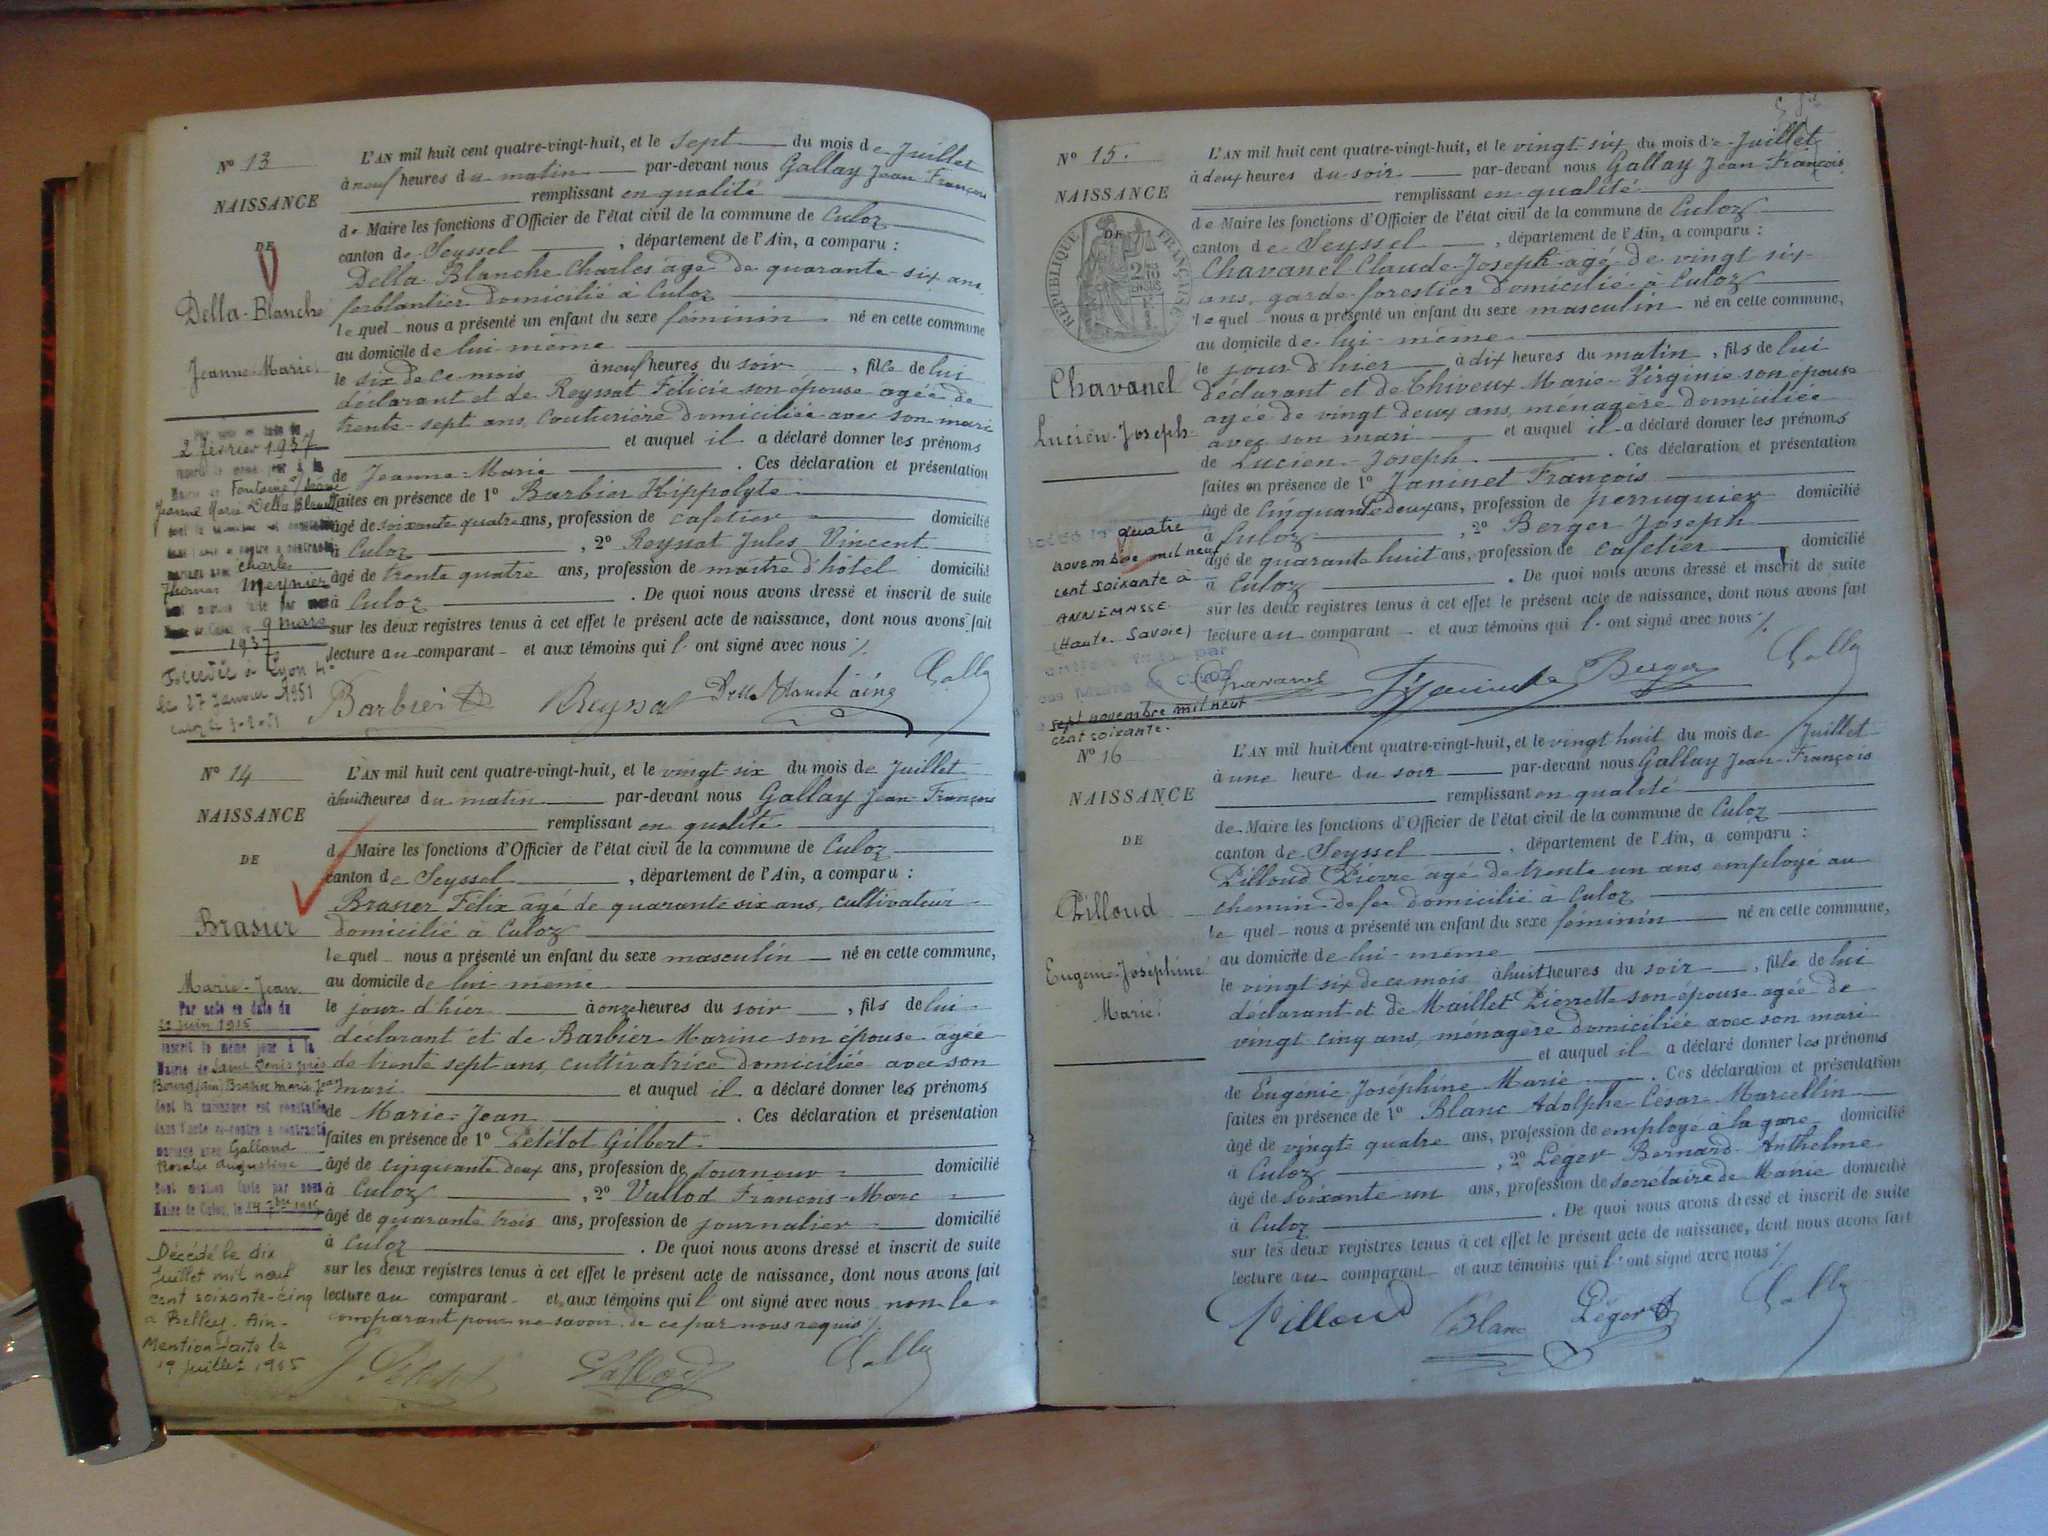 N° 13
NAISSANCE
DE
Della-Blanche
Jeanne-Marie
L'AN mil huit cent quatre-vingt-huit, et le sept du mois de Juillet
à neuf heures du matin par-devant nous Gallay Jean François
remplissant en qualité
de Maire les fonctions d'Officier de l'état civil de la commune de Culoz
canton de Seyssel, département de l'Ain, a comparu :
Della Blanche Charles agé de quarante-six ans
ferblantier domicilié à Culoz
lequel nous a présenté un enfant du sexe féminin né en cette commune
au domicile de lui-même
le six de ce mois à neuf heures du soir, fille de lui
déclarant et de Reyssat Félicie son épouse agée de
trente-sept ans, couturière domiciliée avec son mari
et auquel il a déclaré donner les prénoms
de Jeanne-Marie. Ces déclaration et présentation
faites en présence de 1° Barbier Hippolyte
âgé de soixante quatre ans, profession de cafetier domicilié
à Culoz, 2° Reyssat Jules Vincent
âgé de trente quatre ans, profession de maitre d'hôtel domicilié
à Culoz. De quoi nous avons dressé et inscrit de suite
sur les deux registres tenus à cet effet le présent acte de naissance, dont nous avons fait
lecture au comparant et aux témoins qui l'ont signé avec nous ./.
Barbier Reyssat Della Blanche ainé Gallay
2 février 1937
le même jour à la
Mairie de Fontaine s/ Saône
Jeanne Marie Della Blanche
mariage avec Charles
Thomas Meynier
9 mars
1937
Décédée à Lyon 4e
le 27 Janvier 1951
N° 14
NAISSANCE
DE
Brasier
Marie-Jean
L'AN mil huit cent quatre-vingt-huit, et le vingt six du mois de Juillet
à huit heures du matin par-devant nous Gallay Jean François
remplissant en qualité
de Maire les fonctions d'Officier de l'état civil de la commune de Culoz
canton de Seyssel, département de l'Ain, a comparu :
Brasier Félix agé de quarante six ans, cultivateur
domicilié à Culoz
lequel nous a présenté un enfant du sexe masculin né en cette commune,
au domicile de lui-même
le jour d'hier à onze heures du soir, fils de lui
déclarant et de Barbier Marine son épouse agée
de trente sept ans, cultivatrice domiciliée avec son
mari et auquel il a déclaré donner les prénoms
de Marie-Jean. Ces déclaration et présentation
faites en présence de 1° Pététot Gilbert
âgé de cinquante deux ans, profession de tourneur domicilié
à Culoz, 2° Vallod François-Marc
âgé de quarante trois ans, profession de journalier domicilié
à Culoz. De quoi nous avons dressé et inscrit de suite
sur les deux registres tenus à cet effet le présent acte de naissance, dont nous avons fait
lecture au comparant et aux témoins qui l'ont signé avec nous non le
comparant pour ne savoir de ce par nous requis ./.
Vallod Gallay
Par acte en date du
juin 1915
inscrit le même jour à la
Mairie de Saint Denis près
Bourg (Ain) Brasier Marie Jean
dont la naissance est constatée
dans l'acte ci-contre a contracté
mariage avec Galland
Rosalie Augustine
Dont mention faite par nous
Maire de Culoz, le 14 7bre 1915
Décédé le dix
Juillet mil neuf
cent soixante-cinq
à Belley. Ain-
Mention faite le
19 Juillet 1965
N° 15.
NAISSANCE
DE
RÉPUBLIQUE FRANÇAISE
Chavanel
Lucien-Joseph
L'AN mil huit cent quatre-vingt-huit, et le vingt six du mois de Juillet
à deux heures du soir par-devant nous Gallay Jean François
remplissant en qualité
de Maire les fonctions d'Officier de l'état civil de la commune de Culoz
canton de Seyssel, département de l'Ain, a comparu :
Chavanel Claude-Joseph agé de vingt six
ans, garde-forestier domicilié à Culoz
lequel nous a présenté un enfant du sexe masculin né en cette commune,
au domicile de lui-même
le jour d'hier à dix heures du matin, fils de lui
déclarant et de Thiveux Marie-Virginie son épouse
agée de vingt deux ans, ménagère domiciliée
avec son mari et auquel il a déclaré donner les prénoms
de Lucien-Joseph. Ces déclaration et présentation
faites en présence de 1° Janinet François
âgé de Cinquante deux ans, profession de perruquier domicilié
à Culoz, 2° Berger Joseph
âgé de quarante huit ans, profession de cafetier domicilié
à Culoz. De quoi nous avons dressé et inscrit de suite
sur les deux registres tenus à cet effet le présent acte de naissance, dont nous avons fait
lecture au comparant et aux témoins qui l'ont signé avec nous ./.
Chavanel Janinet Berger Gallay
quatre
novembre mil neuf
cent soixante à
ANNEMASSE.
(Haute-Savoie)
sept novembre mil neuf
cent soixante.
N° 16
NAISSANCE
DE
Pilloud
Eugénie-Joséphine
Marie
L'AN mil huit cent quatre-vingt-huit, et le vingt huit du mois de Juillet
à une heure du soir par-devant nous Gallay Jean-François
remplissant en qualité
de Maire les fonctions d'Officier de l'état civil de la commune de Culoz
canton de Seyssel, département de l'Ain, a comparu :
Pilloud Pierre agé de trente un ans employé au
chemin-de-fer domicilié à Culoz
lequel nous a présenté un enfant du sexe féminin né en cette commune,
au domicile de lui-même
le vingt six de ce mois à huit heures du soir, fille de lui
déclarant et de Maillet Pierrette son épouse agée de
vingt cinq ans, ménagère domiciliée avec son mari
et auquel il a déclaré donner les prénoms
de Eugénie Joséphine Marie. Ces déclaration et présentation
faites en présence de 1° Blanc Adolphe-César-Marcellin
âgé de vingt quatre ans, profession de employé à la gare domicilié
à Culoz, 2° Léger Bernard-Anthelme
âgé de soixante un ans, profession de secrétaire de Mairie domicilié
à Culoz. De quoi nous avons dressé et inscrit de suite
sur les deux registres tenus à cet effet le présent acte de naissance, dont nous avons fait
lecture au comparant et aux témoins qui l'ont signé avec nous ./.
Pilloud Blanc Léger Gallay